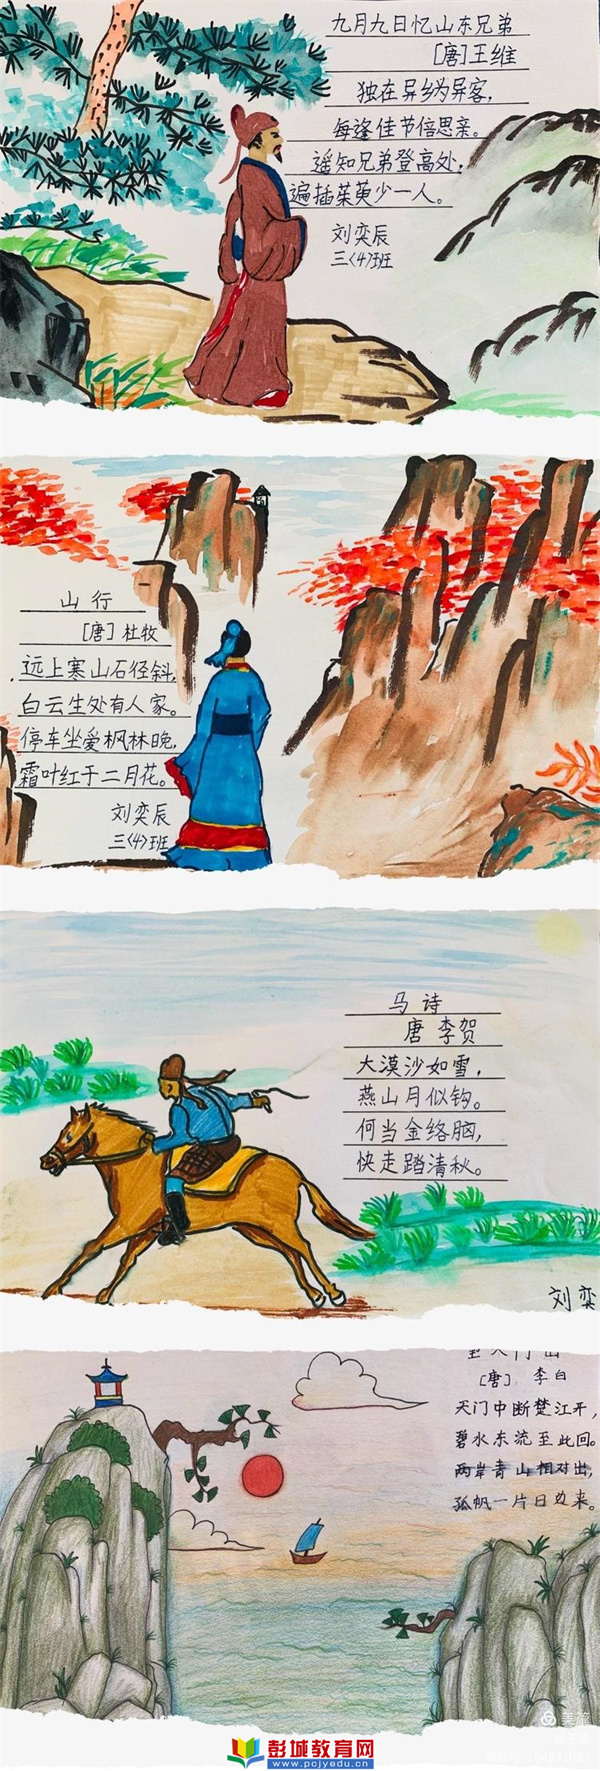 九月九日忆山东兄弟
[唐]王维
独在异乡为异客,
每逢佳节倍思亲。
遥知兄弟登高处,
遍插茱萸少一人。
刘奕辰
三<4>班
山行
[唐]杜牧
远上寒山石径斜,
白云生处有人家。
停车坐爱枫林晚,
霜叶红于二月花。
刘奕辰
三<4>班
马诗
唐 李贺
大漠沙如雪,
燕山月似钩。
何当金络脑,
快走踏清秋。
刘奕
[唐] 李白
天门中断楚江开,
碧水东流至此回。
两岸青山相对出,
孤帆一片日边来。
美篇
彭城教育网
www.pcjyedu.cn